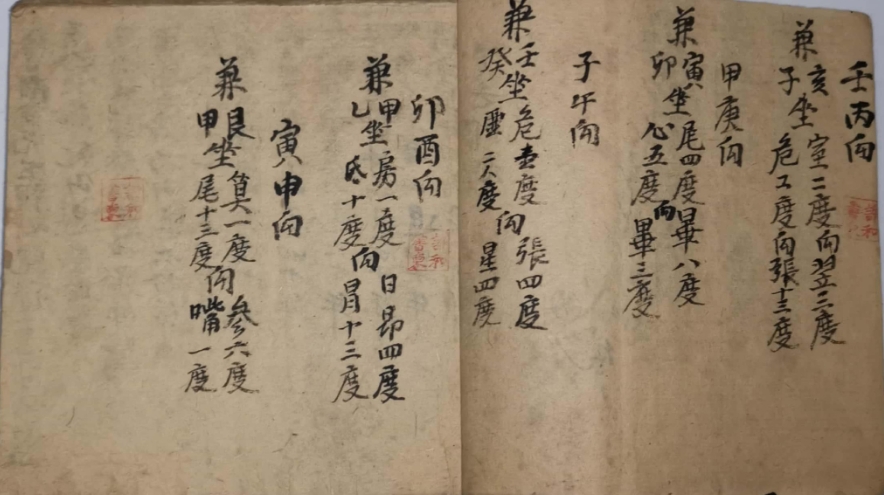 壬丙向
兼亥坐室二度向翌二度
子坐危工度向張十三度
甲庚向
兼寅坐尾四度畢八度
卯坐心五度向畢三度
子午向
兼壬坐危壹度向張四度
癸虚六度星四度
卯酉向
兼甲坐房一度日昴四度
乙坐氐十度向昌十三度
寅申向
兼艮坐箕一度參六度
甲坐尾十三度向嘴一度